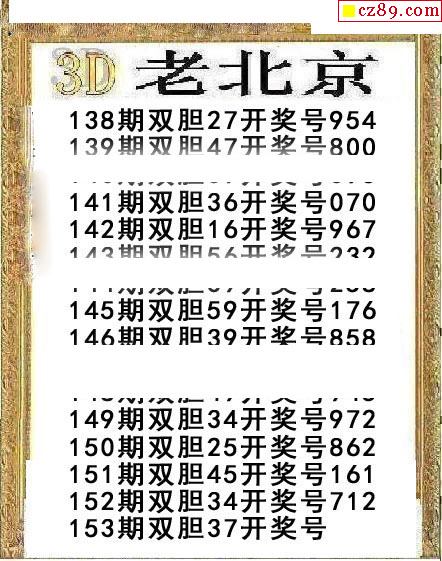 cz89.com
3D 老北京
138期双胆27开奖号954
139期双胆47开奖号800
141期双胆36开奖号070
142期双胆16开奖号967
143期双胆56开奖号232
145期双胆59开奖号176
146期双胆39开奖号858
149期双胆34开奖号972
150期双胆25开奖号862
151期双胆45开奖号161
152期双胆34开奖号712
153期双胆37开奖号